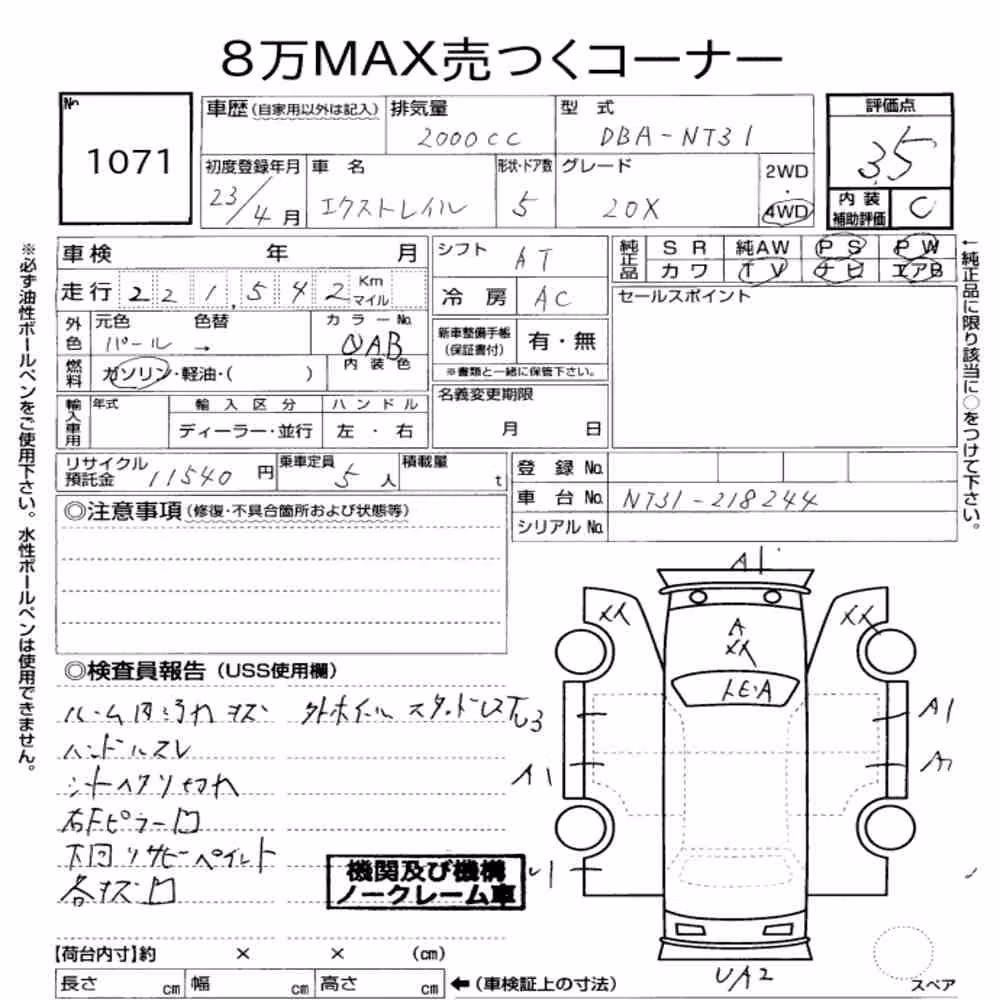 8万MAX売つくコーナー
No.
1071
車歴(自家用以外は記入)
排気量
2000cc
型式
DBA-NT31
初度登録年月
23/4月
車名
エクストレイル
形状・ドア数
5
グレード
20X
2WD
・
4WD
評価点
3.5
内装
補助評価
C
車検 年 月
走行 221,542 Km マイル
外色
元色 色替
パール →
カラーNo.
QAB
燃料
ガソリン・軽油・( )
内装色
輸入車用
年式
輸入区分
ディーラー・並行
ハンドル
左・右
シフト
AT
冷房
AC
新車整備手帳
(保証書付)
有・無
※書類と一緒に保管下さい。
名義変更期限
月 日
純正品
SR 純AW PS PW
カワ TV ナビ エアB
セールスポイント
リサイクル
預託金
11540円
乗車定員
5人
積載量
t
登録No.
車台No. NT31-218244
シリアルNo.
◎注意事項(修復・不具合箇所および状態等)
◎検査員報告(USS使用欄)
ルーム内汚れキズ
ハンドルスレ
シートヘタリ切れ
右Fピラー凹
下回りサビペイント
各キズ凹
機関及び機構
ノークレーム車
A1
XX
XX
A
XX
トビA
A1
A1
UA2
スペア
【荷台内寸】約 × × (cm)
長さ cm 幅 cm 高さ cm
←(車検証上の寸法)
※必ず油性ボールペンをご使用下さい。水性ボールペンは使用できません。
←純正品に限り該当に○をつけて下さい。